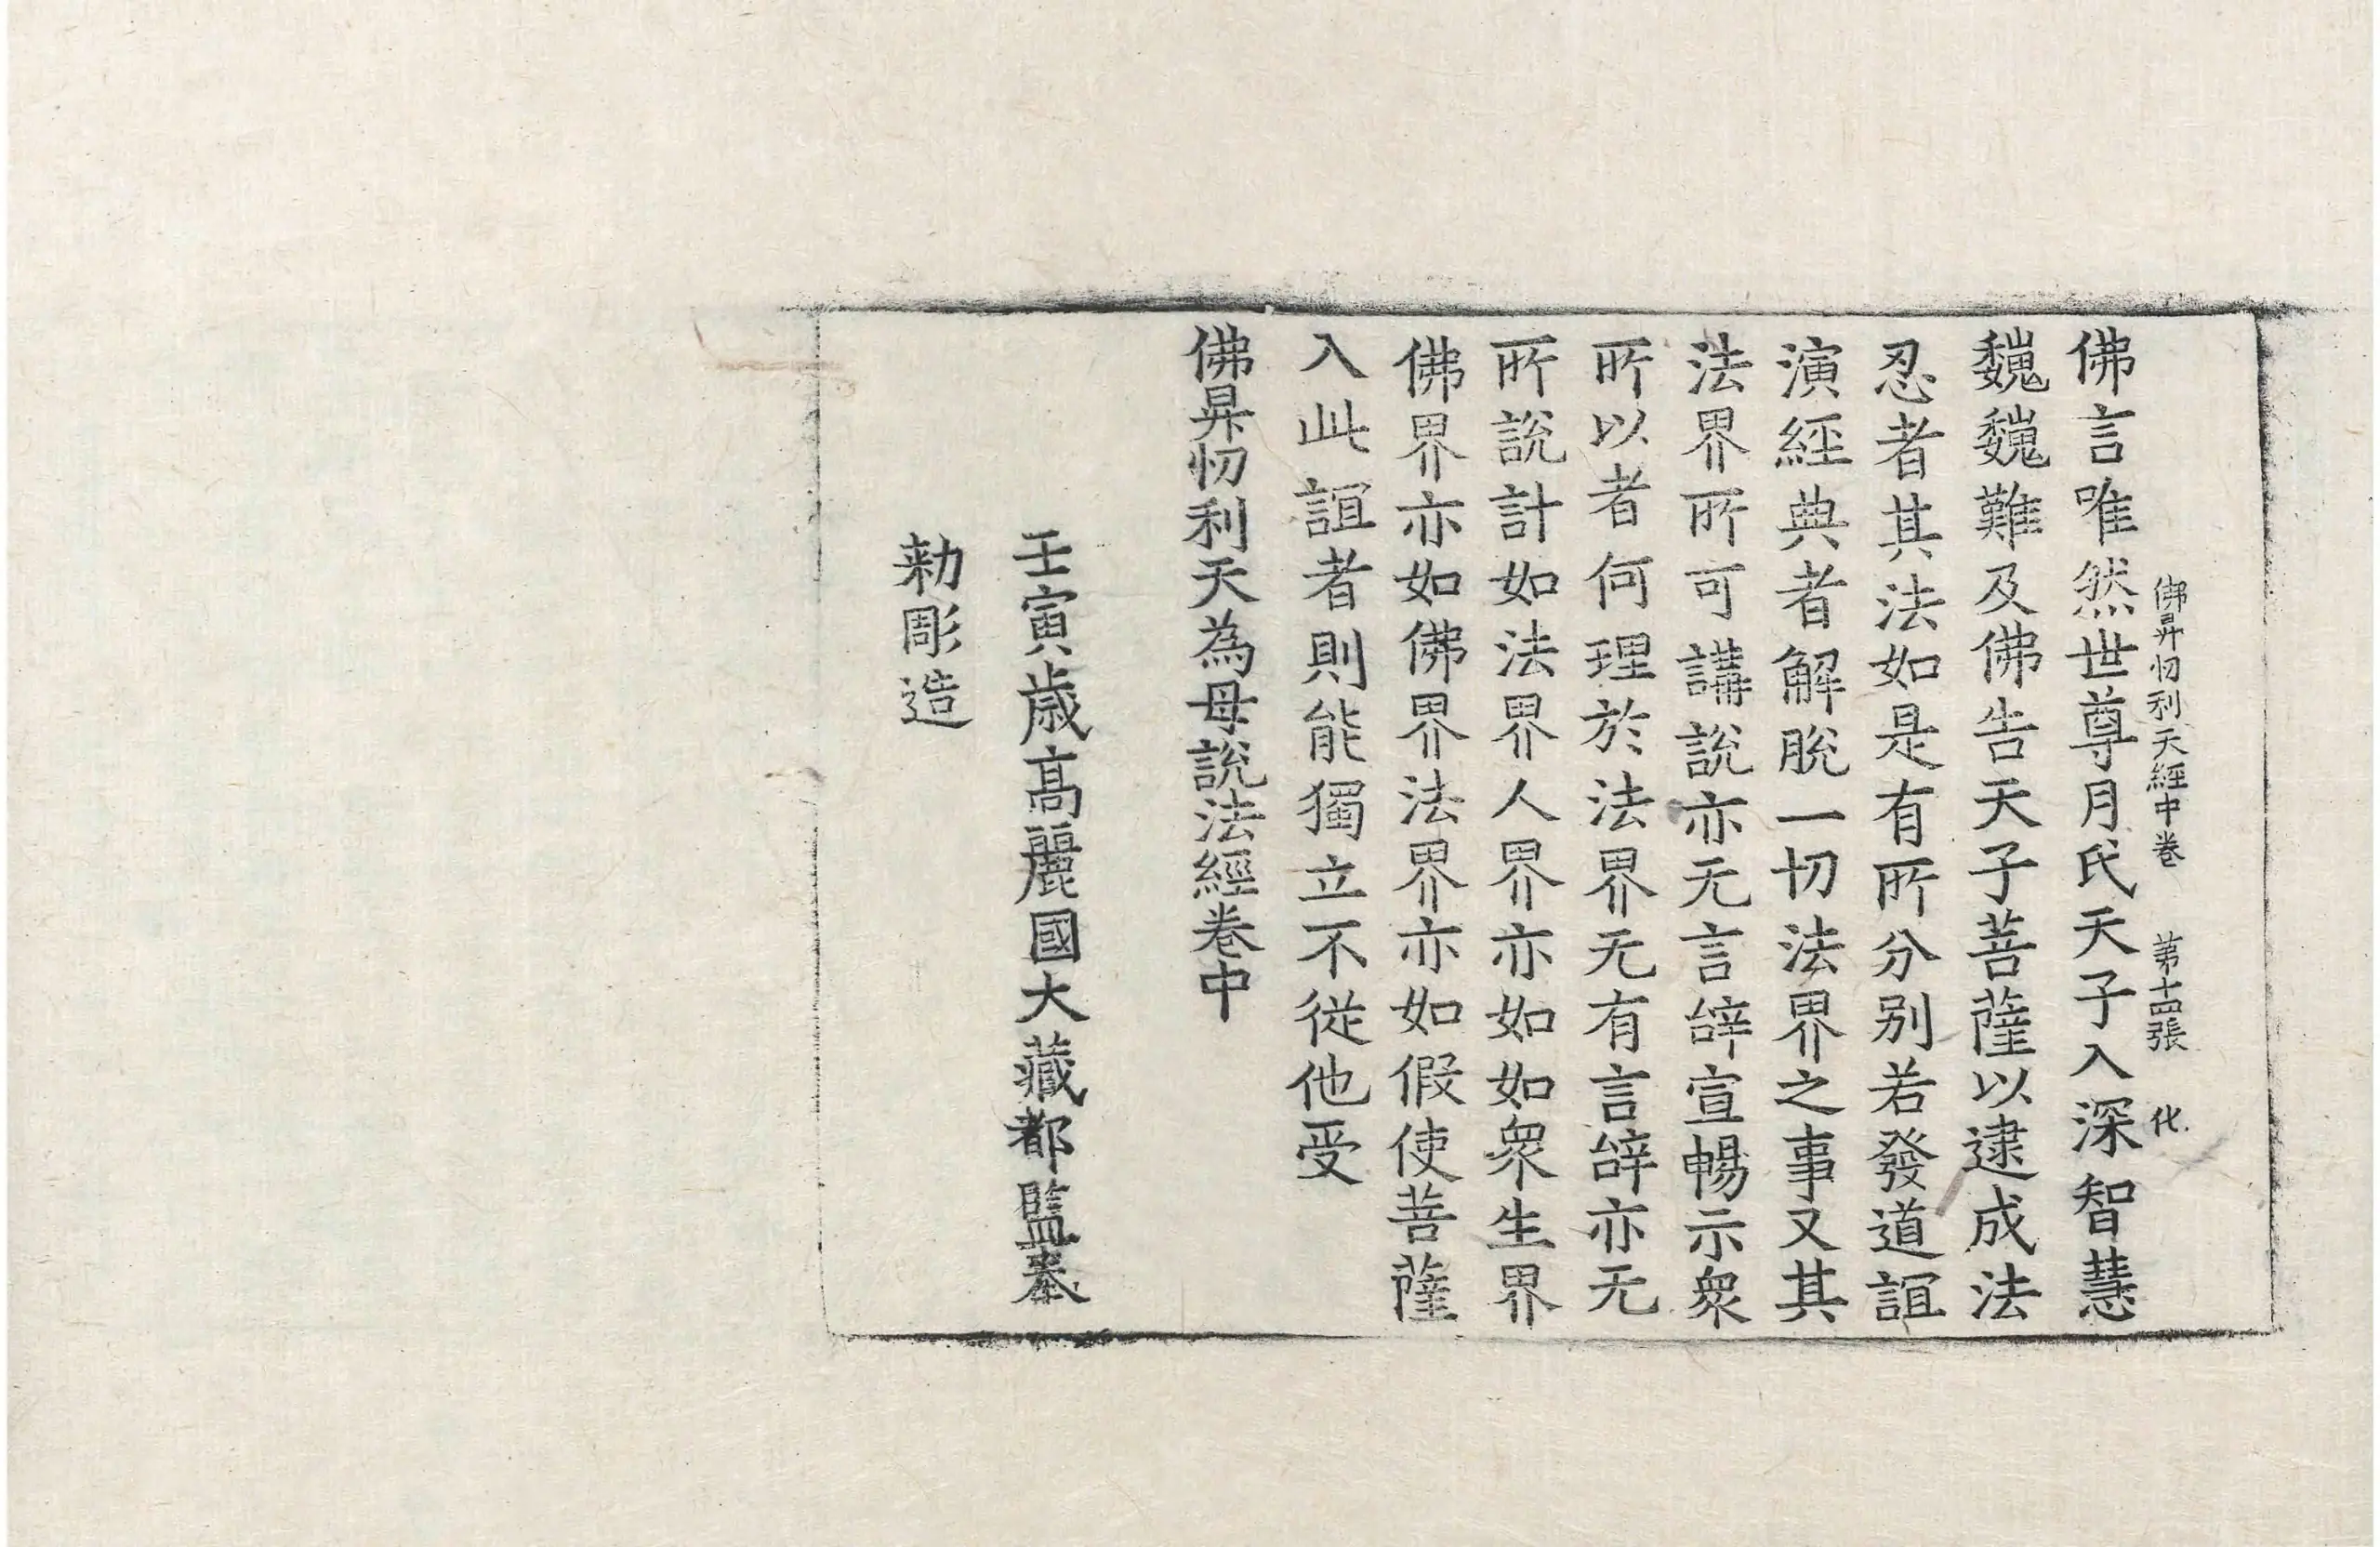 佛昇忉利天經中卷 第十四張 化
佛言唯然世尊月氏天子入深智慧
巍巍難及佛告天子菩薩以逮成法
忍者其法如是有所分别若發道誼
演經典者解脫一切法界之事又其
法界所可講說亦无言辝宣暢示衆
所以者何理於法界无有言辝亦无
所說計如法界人界亦如如衆生界
佛界亦如佛界法界亦如假使菩薩
入此誼者則能獨立不從他受
佛昇忉利天為母說法經卷中
壬寅歲高麗國大藏都監奉
勑彫造